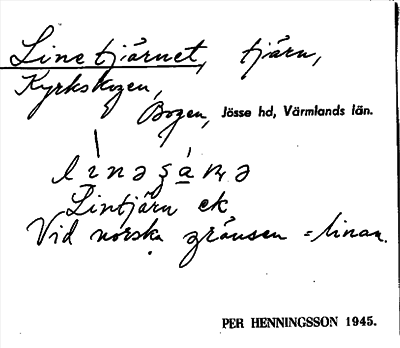 Linetjärnet, tjärn,
Kyrkskogen,
Bogen, Jösse hd, Värmlands län.
Lintjärn ek
Vid norska gränsen = linan.
PER HENNINGSSON 1945.